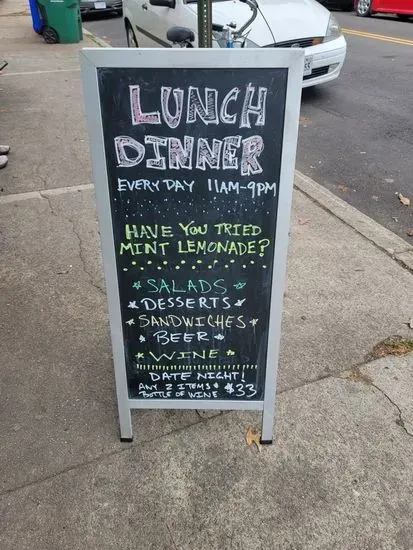 LUNCH
DINNER
EVERY DAY 11AM-9PM
HAVE YOU TRIED
MINT LEMONADE?
SALADS
DESSERTS
SANDWICHES
BEER
WINE
DATE NIGHT!
ANY 2 ITEMS &
BOTTLE OF WINE $33